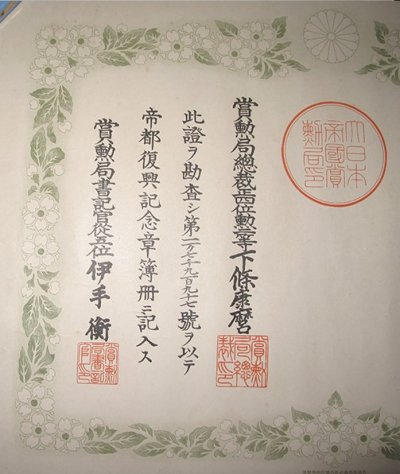 大日本
帝國賞
勲局印
賞勲局總裁正位勲等下條康麿
賞勲
局總
裁印
此證ヲ勘査シ第一万七千九百九十七號ヲ以テ
帝都復興記念章簿冊ニ記入ス
賞勲局書記官從五位伊手衡
賞勲
局書記
官印